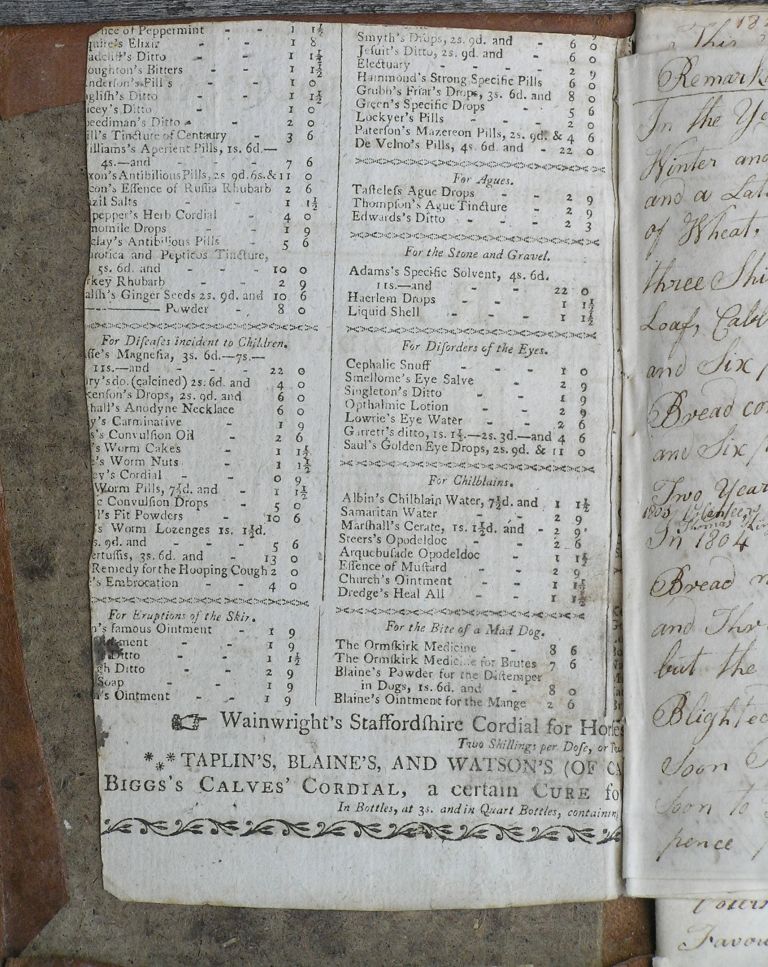 of Peppermint - - 1 1½
Elixir - - 1 8
Ditto - - 1 1½
oughton's Bitters - - 1 1½
nderson's Pills - - 1 0
gliſh's Ditto - - 1 1½
cey's Ditto - - 1 0
peediman's Ditto - - 2 0
ill's Tincture of Centaury - 3 6
illiams's Aperient Pills, 1s. 6d.—
4s.—and - - - 7 6
xon's Antibilious Pills, 2s 9d. 6s. & 11 0
con's Eſſence of Ruſſia Rhubarb 2 6
zil Salts - - - 1 1½
pepper's Herb Cordial - 4 0
momile Drops - - 1 9
clay's Antibilious Pills - 5 6
and Pepticos Tincture,
5s. 6d. and - - 10 0
rkey Rhubarb - - 2 9
alſh's Ginger Seeds 2s. 9d. and 10 6
——— Powder - 8 0
For Diſeaſes incident to Children.
Magneſia, 3s. 6d.—7s.—
11s.—and - - - 22 0
ry's do. (calcined) 2s. 6d. and 4 0
kenſon's Drops, 2s. 9d. and 6 0
hall's Anodyne Necklace 6 0
y's Carminative - - 1 9
s's Convulſion Oil - 2 6
's Worm Cakes - - 1 1½
's Worm Nuts - - 1 1½
ey's Cordial - - 0 9
Worm Pills, 7½d. and - 1 1½
c Convulſion Drops - 5 0
l's Fit Powders - - 10 6
's Worm Lozenges 1s. 1½d.
s. 9d. and - - 5 6
ertuſſis, 3s. 6d. and - 13 0
Remedy for the Hooping Cough 2 0
's Embrocation - - 4 0
For Eruptions of the Skin.
n's famous Ointment - 1 9
tment - - 1 9
Ditto - - 1 1½
gh Ditto - - 2 9
Soap - - 1 9
's Ointment - - 1 9
Smyth's Drops, 2s. 9d. and - 6 0
Jeſuit's Ditto, 2s. 9d. and - 6 0
Electuary - - - 2 9
Hammond's Strong Specific Pills 6 0
Grubb's Friar's Drops, 3s. 6d. and 8 0
Green's Specific Drops - 5 6
Lockyer's Pills - - 2 0
Paterſon's Mazereon Pills, 2s. 9d. & 4 6
De Velno's Pills, 4s. 6d. and - 22 0
For Agues.
Taſteleſs Ague Drops - - 2 9
Thompſon's Ague Tincture - 2 9
Edwards's Ditto - - - 2 3
For the Stone and Gravel.
Adams's Specific Solvent, 4s. 6d.
11s.—and - - - 22 0
Haerlem Drops - - 1 1½
Liquid Shell - - - 1 1½
For Diſorders of the Eyes.
Cephalic Snuff - - - 1 0
Smellome's Eye Salve - 2 9
Singleton's Ditto - - 1 9
Opthalmic Lotion - - 2 9
Lowrie's Eye Water - - 2 6
Garrett's ditto, 1s. 1½.—2s. 3d.—and 4 6
Saul's Golden Eye Drops, 2s. 9d. & 11 0
For Chilblains.
Albin's Chilblain Water, 7½d. and 1 1½
Samaritan Water - - 2 9
Marſhall's Cerate, 1s. 1½d. and - 2 9
Steers's Opodeldoc - - 2 6
Arquebuſade Opodeldoc - 1 1½
Eſſence of Muſtard - - 2 9
Church's Ointment - - 1 1½
Dredge's Heal All - - 1 1½
For the Bite of a Mad Dog.
The Ormſkirk Medicine - 8 6
The Ormſkirk Medicine for Brutes 7 6
Blaine's Powder for the Diſtemper
in Dogs, 1s. 6d. and - 8 0
Blaine's Ointment for the Mange 2 6
☞ Wainwright's Staffordſhire Cordial for Horſes
Two Shillings per Doſe, or
*** TAPLIN'S, BLAINE'S, AND WATSON'S (OF CA
BIGGS'S CALVES' CORDIAL, a certain CURE fo
In Bottles, at 3s. and in Quart Bottles, containing
This
Remark
In the Yea
Winter and
and a Lat
of Wheat.
three Shi
Loaf,
and Six p
Bread co
and Six p
Two Year
Thomas
In 1804
Bread
and Thr
but the
Blighted
Soon
Soon to
pence
Favou